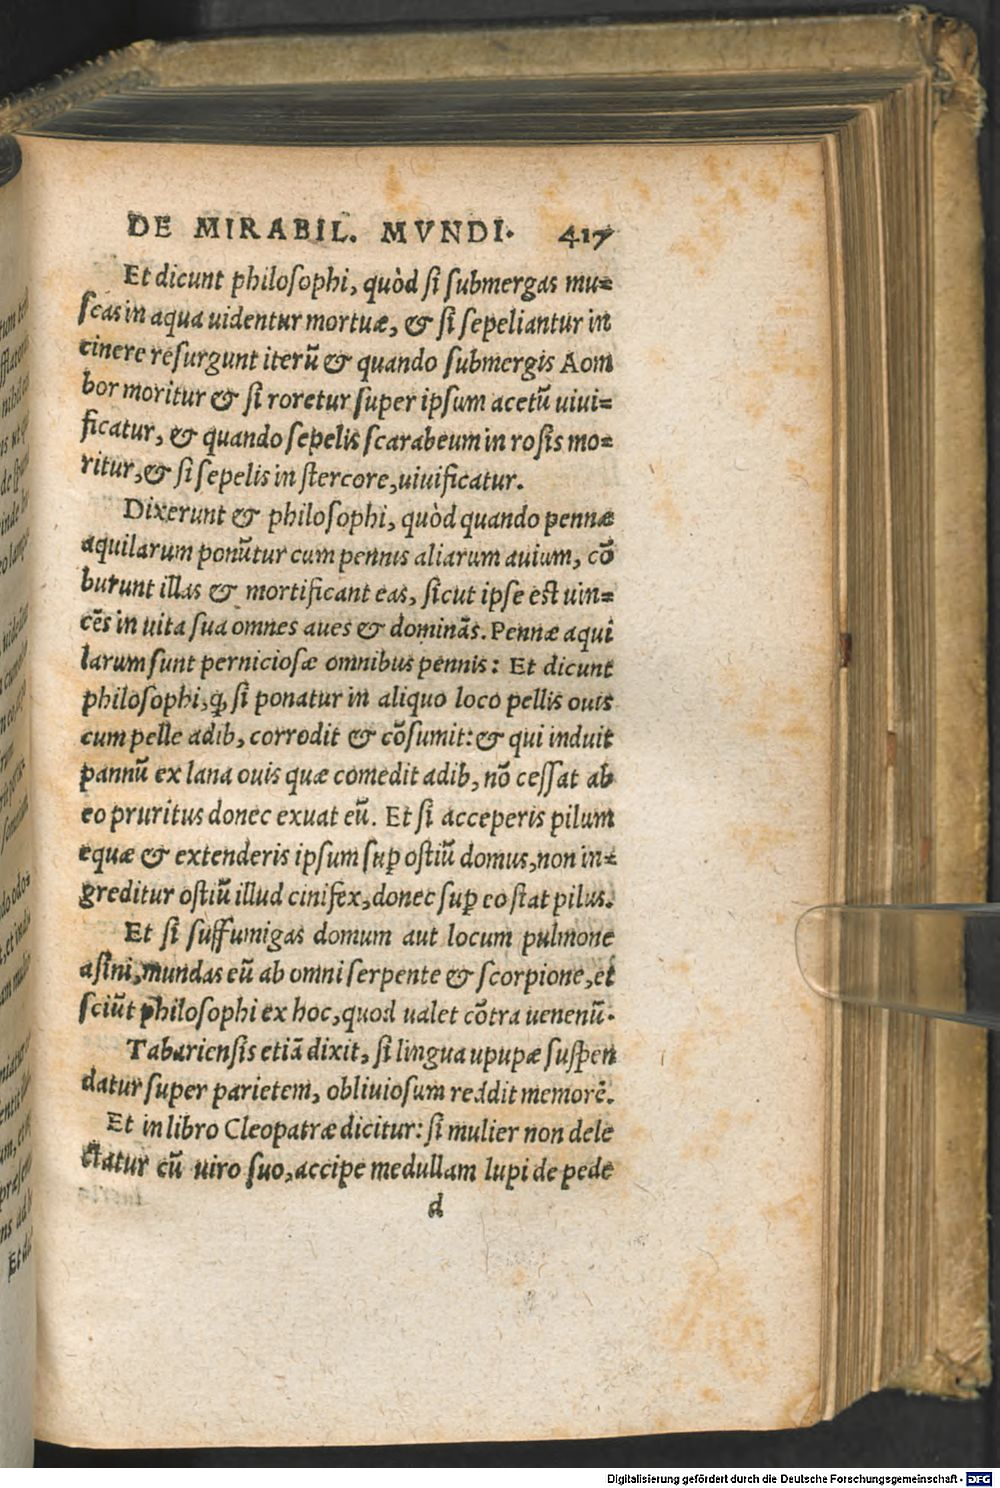 DE MIRABIL. MVNDI. 417
Et dicunt philosophi, quòd si submergas mu=
scas in aqua uidentur mortuæ, & si sepeliantur in
cinere resurgunt iterũ & quando submergis Aom
bor moritur & si roretur super ipsum acetũ uiui=
ficatur, & quando sepelis scarabeum in rosis mo=
ritur, & si sepelis in stercore, uiuificatur.
Dixerunt & philosophi, quòd quando pennæ
aquilarum ponũtur cum pennis aliarum auium, cõ
burunt illas & mortificant eas, sicut ipse est uin=
cẽs in uita sua omnes aues & dominãs. Pennæ aqui
larum sunt perniciosæ omnibus pennis: Et dicunt
philosophi, q̃, si ponatur in aliquo loco pellis ouis
cum pelle adib, corrodit & cõsumit: & qui induit
pannũ ex lana ouis quæ comedit adib, nõ cessat ab
eo pruritus donec exuat eũ. Et si acceperis pilum
equæ & extenderis ipsum sup̱ ostiũ domus, non in=
greditur ostiũ illud cinifex, donec sup̱ eo stat pilus.
Et si suffumigas domum aut locum pulmone
asini, mundas eũ ab omni serpente & scorpione, et
sciũt philosophi ex hoc, quod ualet cõtra uenenũ.
Tabariensis etiã dixit, si lingua upupæ suspen
datur super parietem, obliuiosum reddit memorẽ.
Et in libro Cleopatræ dicitur: si mulier non dele
ctatur cũ uiro suo, accipe medullam lupi de pede
d
Digitalisierung gefördert durch die Deutsche Forschungsgemeinschaft - DFG